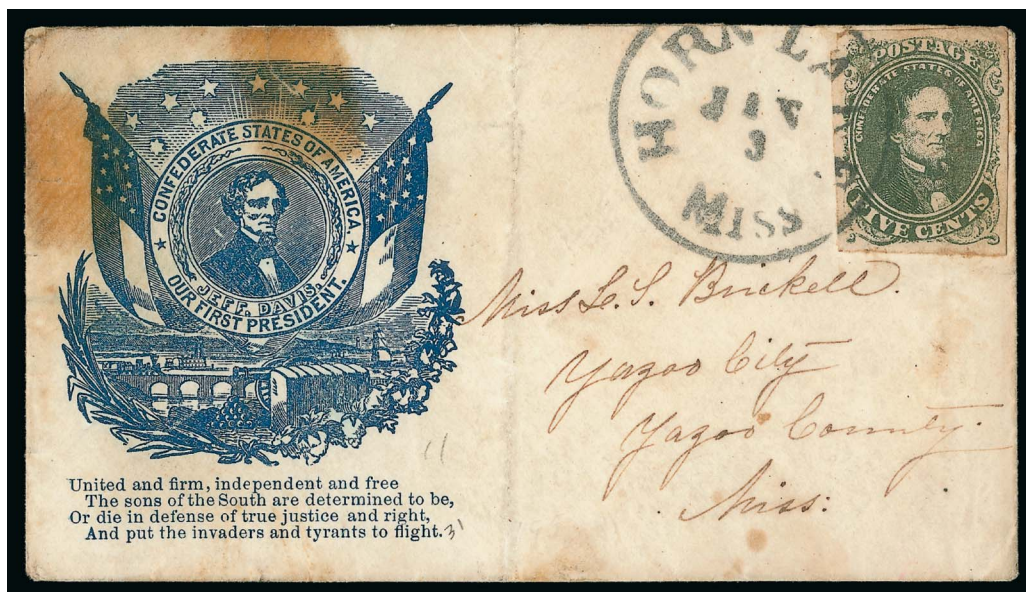 CONFEDERATE STATES OF AMERICA.
JEFF. DAVIS,
OUR FIRST PRESIDENT.
United and firm, independent and free
The sons of the South are determined to be,
Or die in defense of true justice and right,
And put the invaders and tyrants to flight.
HORN LA
JAN
3
MISS
POSTAGE
CONFEDERATE STATES OF AMERICA
FIVE CENTS
Miss L. S. Brickell.
Yazoo City
Yazoo County.
Miss:
11